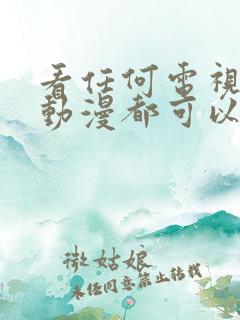 看任何電視
動漫都可以
微姑娘
未任同意禁止轉載